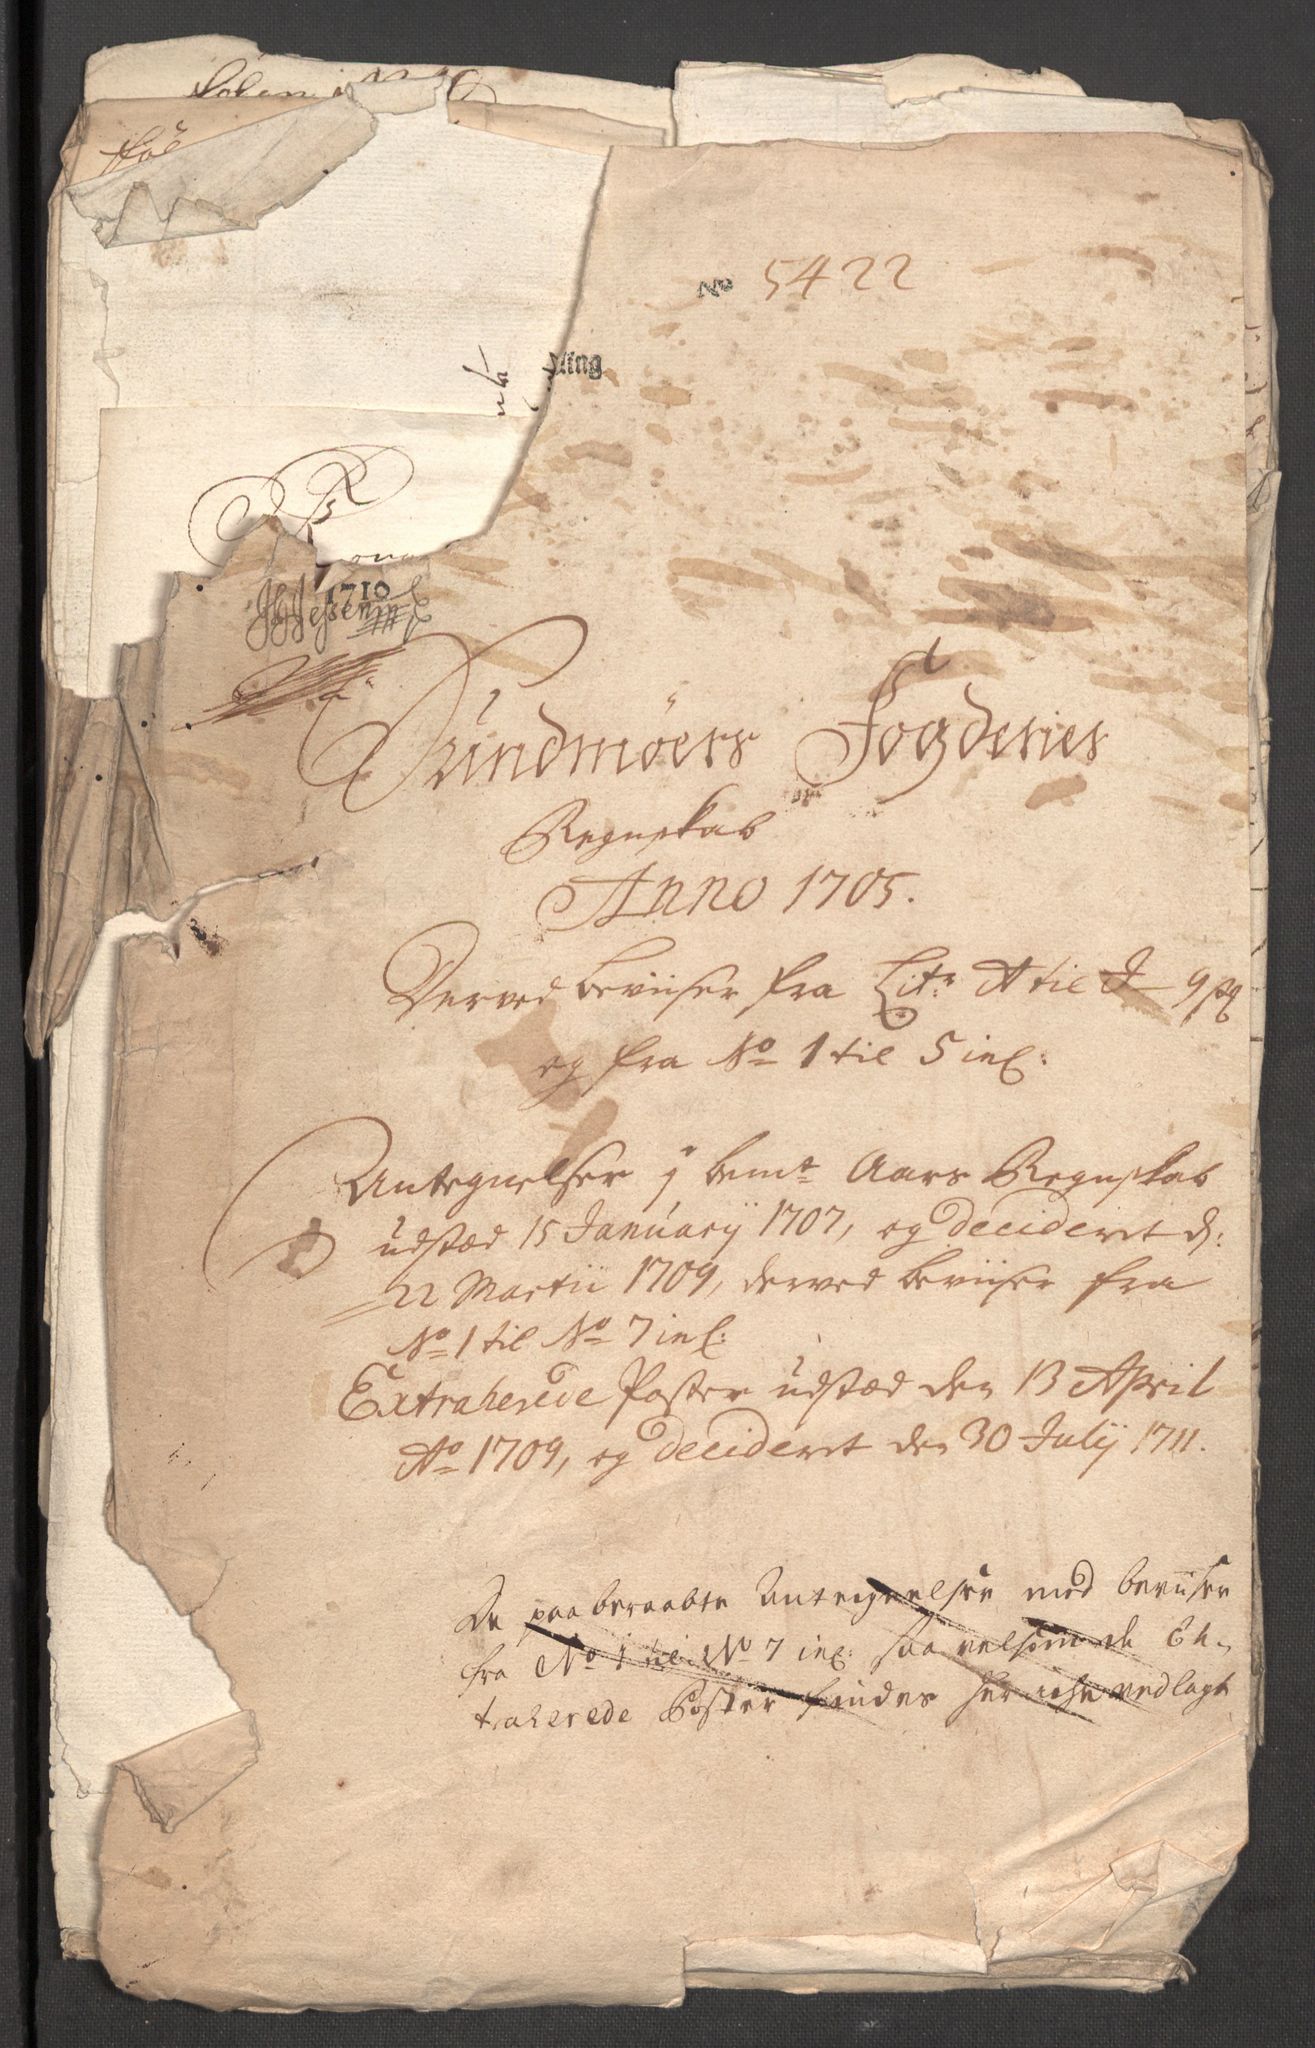 No 5422
1710
Sundmöers Fogderies
Regnskab
Anno 1705.
Derved beviiser fra Litr A til J
og fra No 1 til 5 incl:
Antegnelser j bemt Aars Regnskab
udstæd 15 Januarij 1707, og decideret d:
22 Martii 1709, derved beviiser fra
No 1 til No 7 incl:
Extraherede Poster udstæd den 13 April
Ao 1709, og decideret den 30 Julij 1711.
De paaberaabte Antegnelser med beviiser
fra No 1 til No 7 incl: saavelsom de Ex-
traherede Poster findes her iche vedlagt